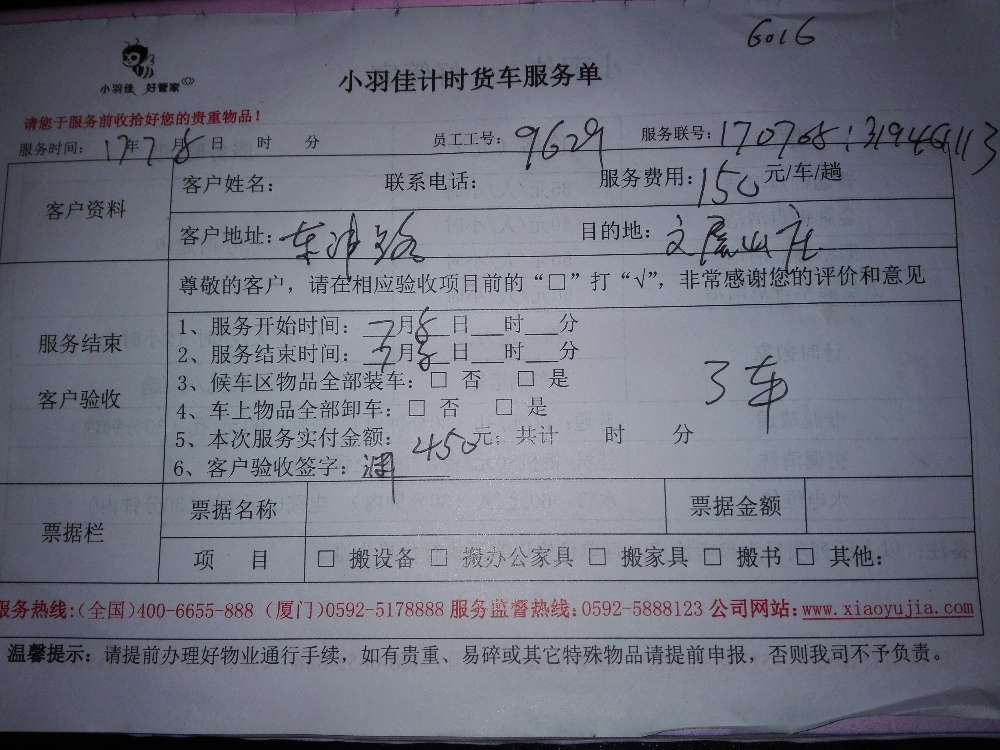 6016
小羽佳 好管家
小羽佳计时货车服务单
请您于服务前收拾好您的贵重物品！
服务时间： 17年7月8日 时 分 员工工号：9629 服务联号：170708:31946113
客户资料
客户姓名： 联系电话： 服务费用：150元/车/趟
客户地址： 目的地：文屏山庄
尊敬的客户，请在相应验收项目前的“□”打“√”，非常感谢您的评价和意见
服务结束
客户验收
1、服务开始时间：7月8日___时___分
2、服务结束时间：7月8日___时___分
3、候车区物品全部装车：□ 否 □ 是
4、车上物品全部卸车：□ 否 □ 是
5、本次服务实付金额：450元；共计 时 分
6、客户验收签字：
3车
票据栏
票据名称 票据金额
项 目 □ 搬设备 □ 搬办公家具 □ 搬家具 □ 搬书 □ 其他：
服务热线：(全国)400-6655-888 (厦门)0592-5178888 服务监督热线：0592-5888123 公司网站：www.xiaoyujia.com
温馨提示：请提前办理好物业通行手续，如有贵重、易碎或其它特殊物品请提前申报，否则我司不予负责。